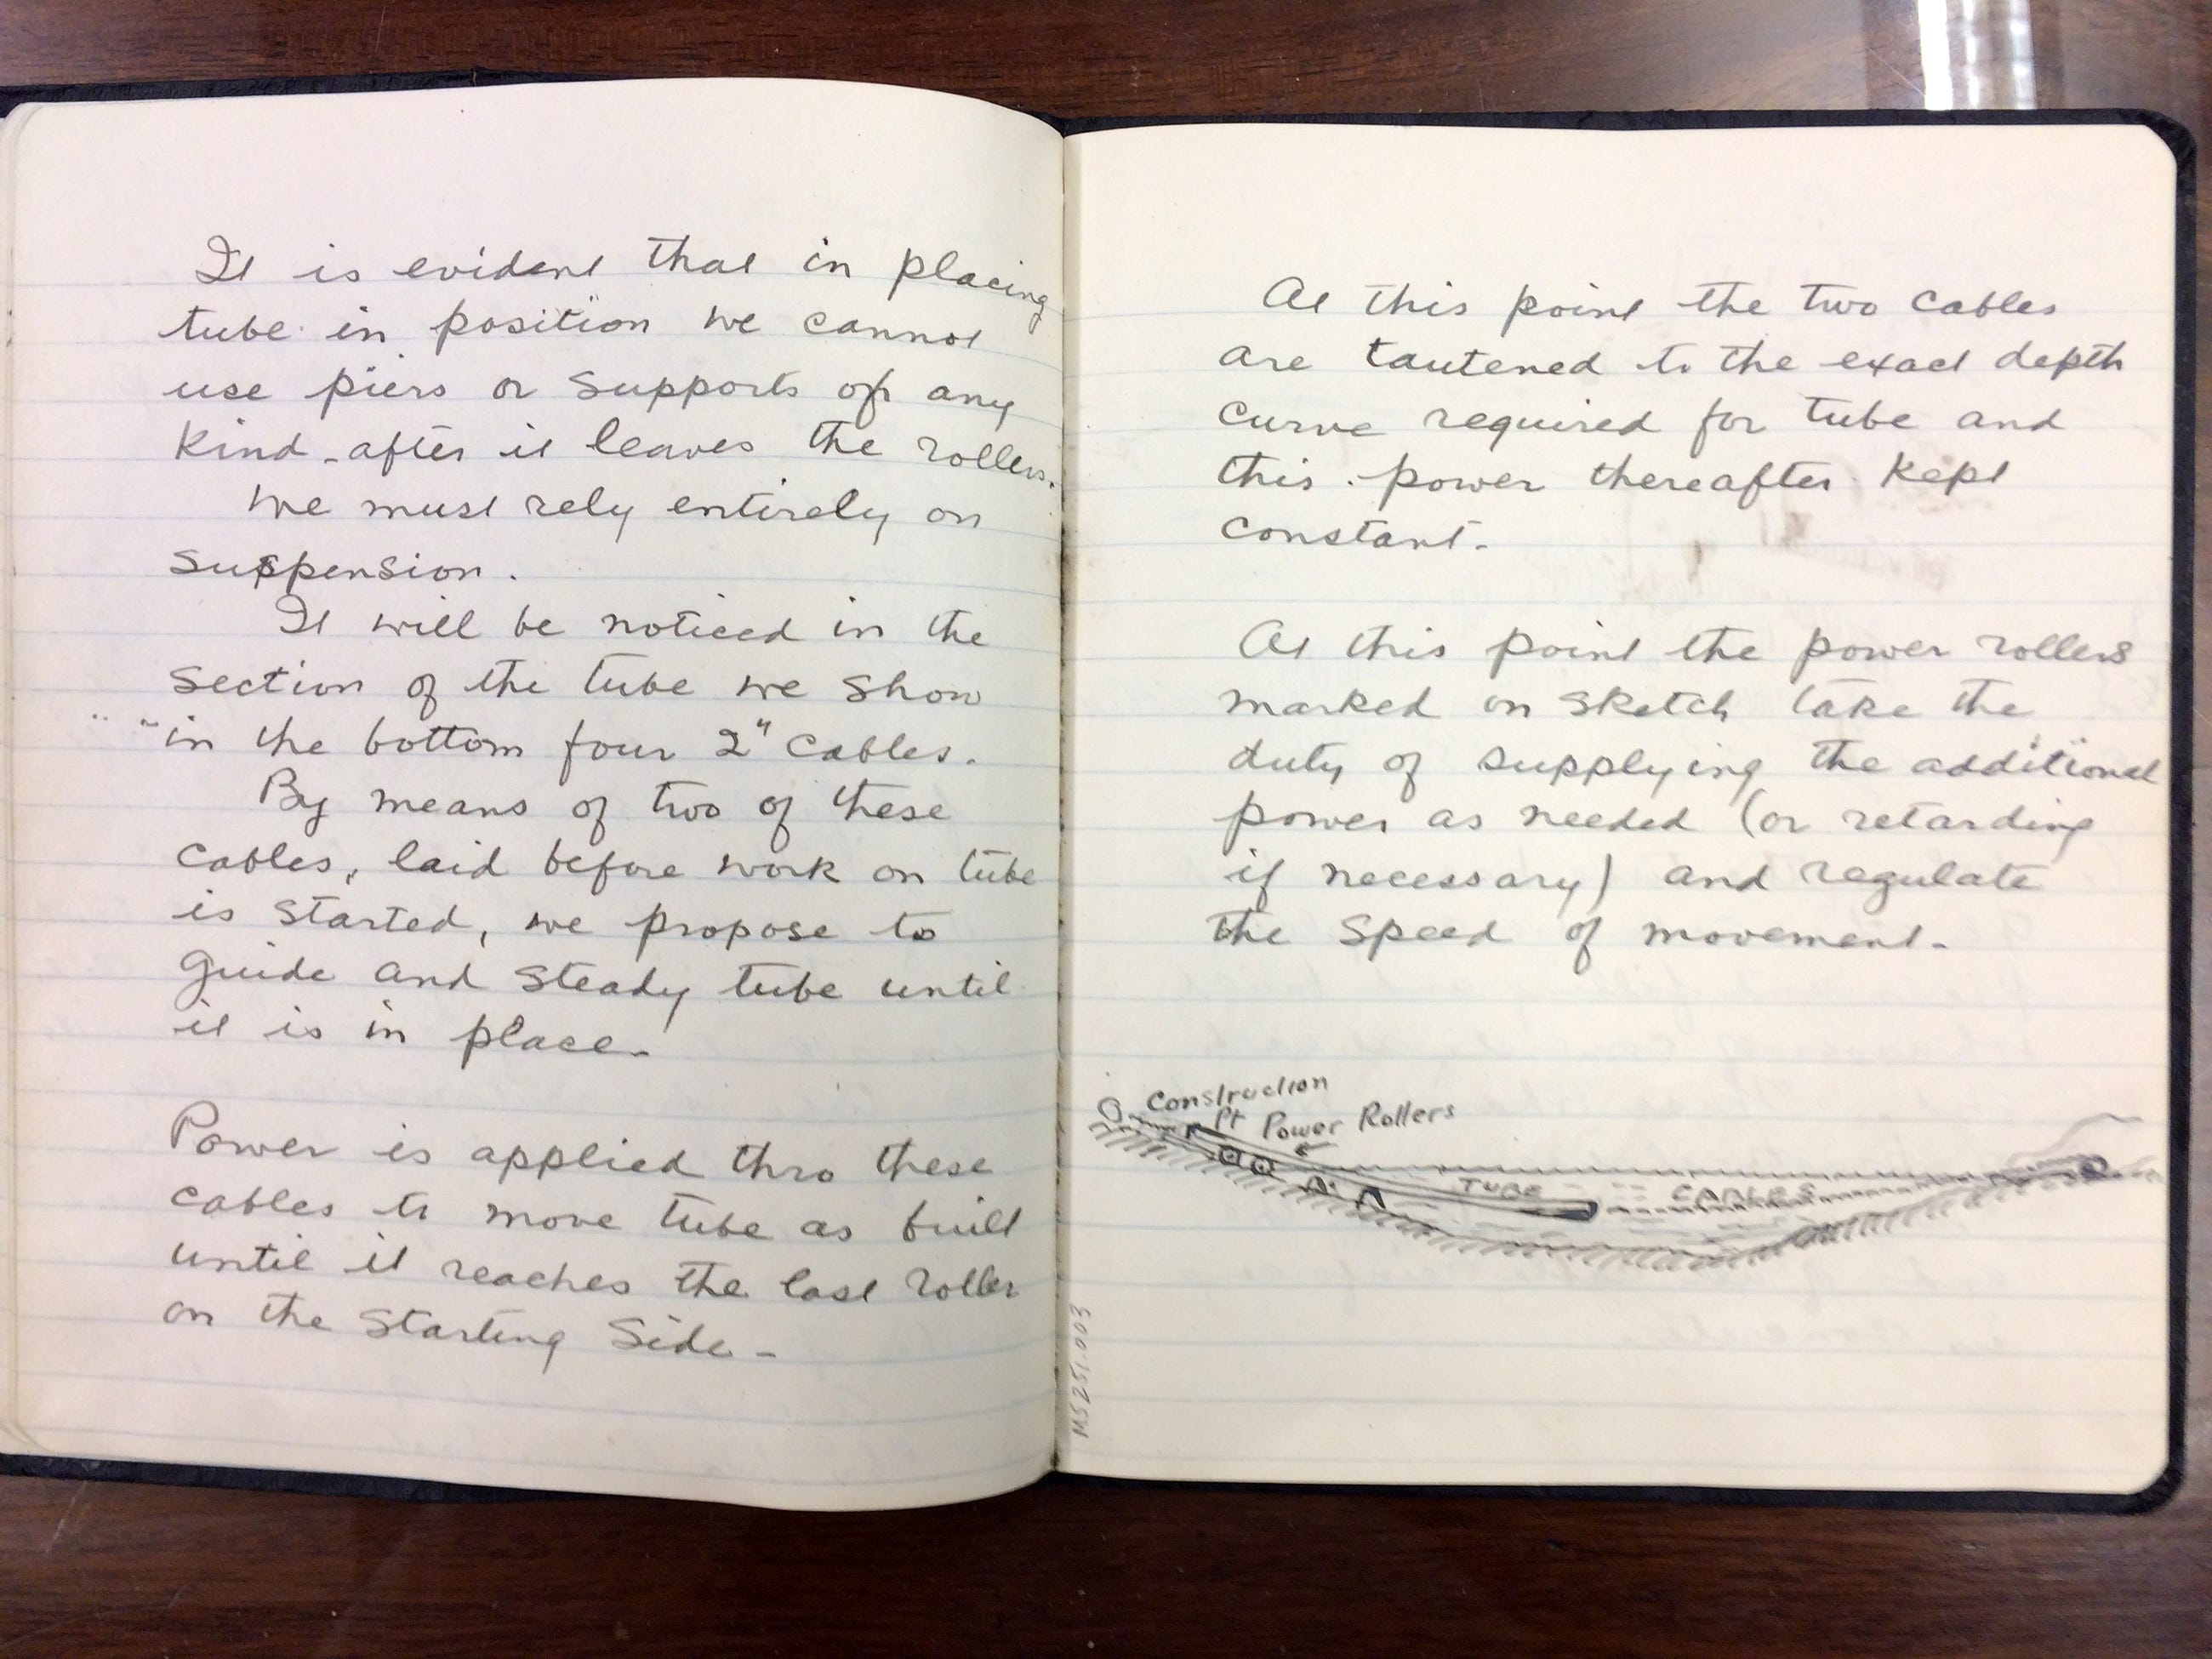 It is evident that in placing
tube in position we cannot
use piers or supports of any
kind - after it leaves the rollers.
We must rely entirely on
suspension.
It will be noticed in the
section of the tube we show
in the bottom four 2" cables.
By means of two of these
cables, laid before work on tube
is started, we propose to
guide and steady tube until
it is in place -
Power is applied thro these
cables to move tube as built
until it reaches the last roller
on the starting side -
At this point the two cables
are tautened to the exact depth
curve required for tube and
this power thereafter kept
constant -
At this point the power rollers
marked on sketch take the
duty of supplying the additional
power as needed (or retarding
if necessary) and regulate
the speed of movement -
Construction
Pt Power Rollers
TUBE CABLES
MS251.003